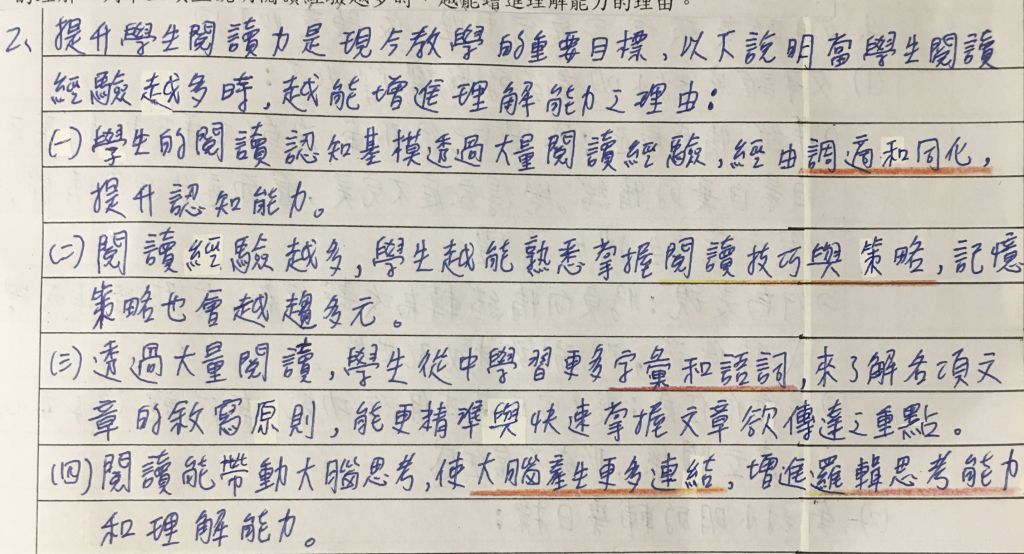 越能增進理解能力的理由。
2、提升學生閱讀力是現今教學的重要目標,以下說明當學生閱讀
經驗越多時,越能增進理解能力之理由:
(一)學生的閱讀認知基模透過大量閱讀經驗,經由調適和同化,
提升認知能力。
(二)閱讀經驗越多,學生越能熟悉掌握閱讀技巧與策略,記憶
策略也會越趨多元。
(三)透過大量閱讀,學生從中學習更多字彙和語詞,來了解各項文
章的敘寫原則,能更精準與快速掌握文章欲傳達之重點。
(四)閱讀能帶動大腦思考,使大腦產生更多連結,增進邏輯思考能力
和理解能力。